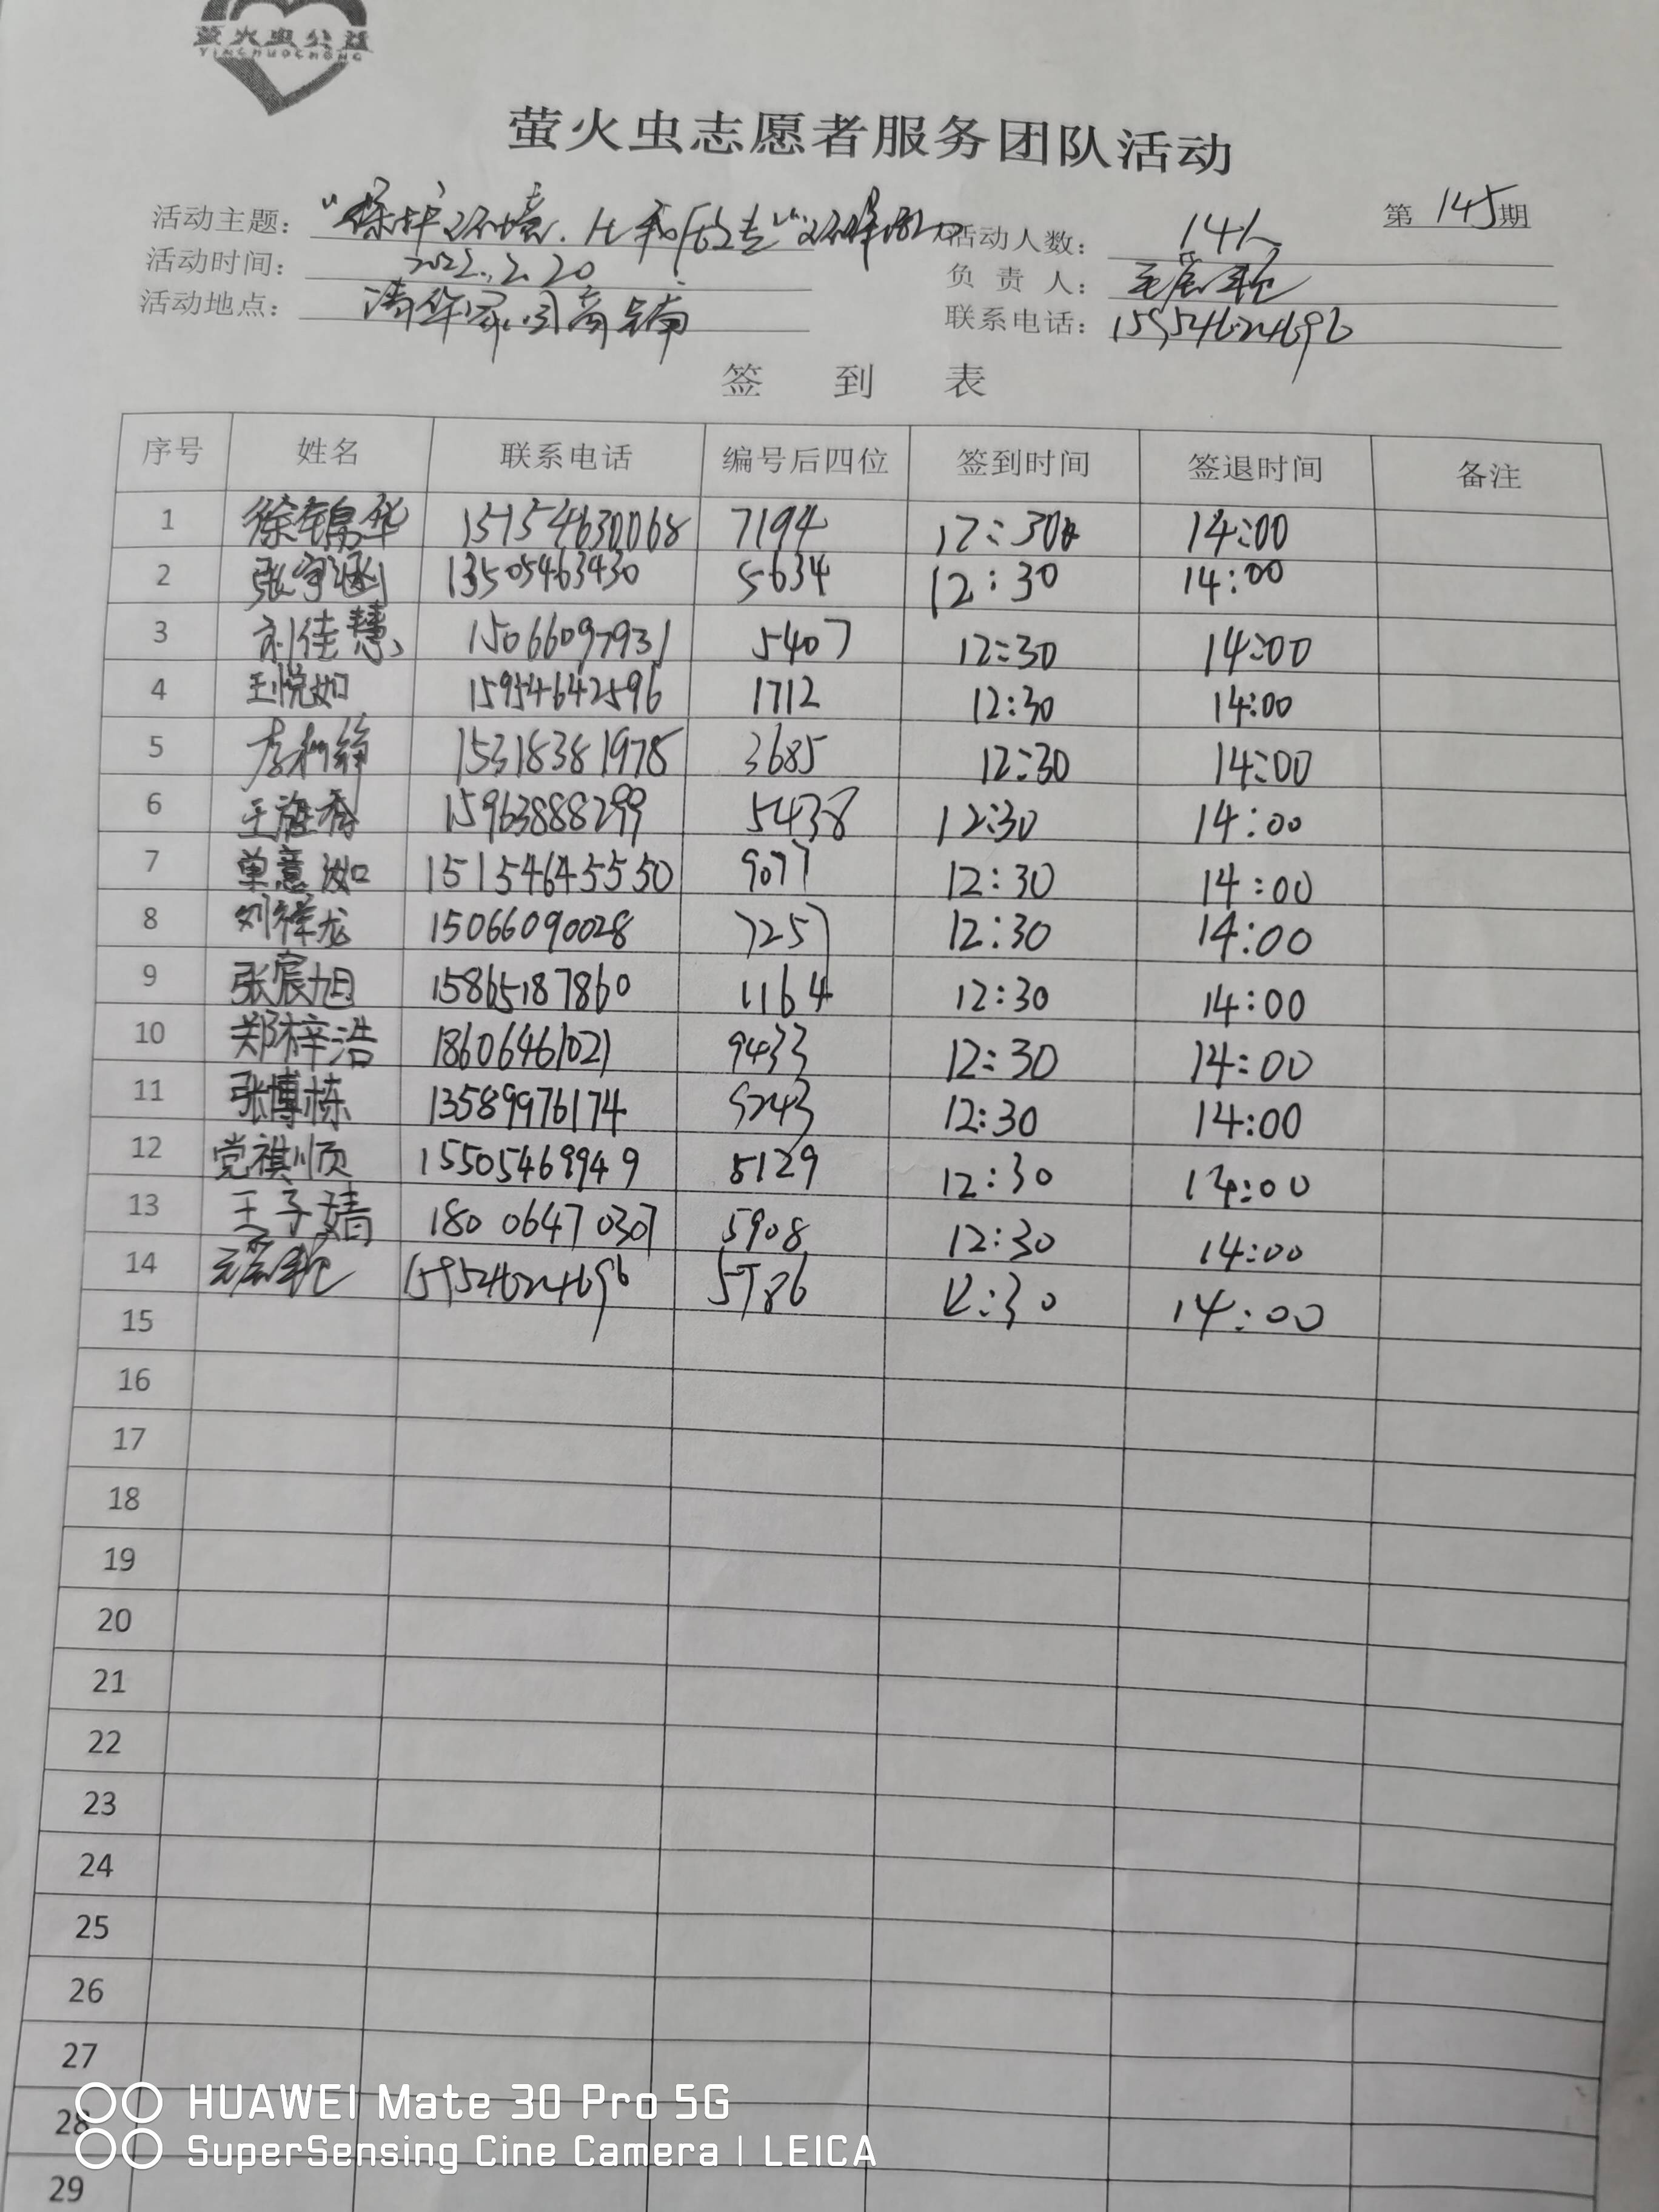 萤火虫公益
YINGHUOCHONG
萤火虫志愿者服务团队活动
第 145 期
活动主题： "保护环境，从我做起" 活动人数： 14人
活动时间： 2022.2.20 负责人：
活动地点： 清华家园商铺 联系电话： 15954624696
签到表
序号 姓名 联系电话 编号后四位 签到时间 签退时间 备注
1 徐锦华 15154630068 7194 12:30 14:00
2 张宇涵 13505463430 5634 12:30 14:00
3 刘佳慧 15066097931 5407 12:30 14:00
4 王悦如 15954642596 1712 12:30 14:00
5 15318381978 3685 12:30 14:00
6 15963888299 5438 12:30 14:00
7 单意如 15154645550 9077 12:30 14:00
8 刘祥龙 15066090028 7257 12:30 14:00
9 张宸旭 15865187860 1164 12:30 14:00
10 郑梓浩 18606461021 9433 12:30 14:00
11 张博栋 13589976174 9243 12:30 14:00
12 党祺顺 15505469949 5129 12:30 14:00
13 王子婧 18006470307 5908 12:30 14:00
14 15954624696 5786 12:30 14:00
15
16
17
18
19
20
21
22
23
24
25
26
27
28
29
HUAWEI Mate 30 Pro 5G
SuperSensing Cine Camera | LEICA